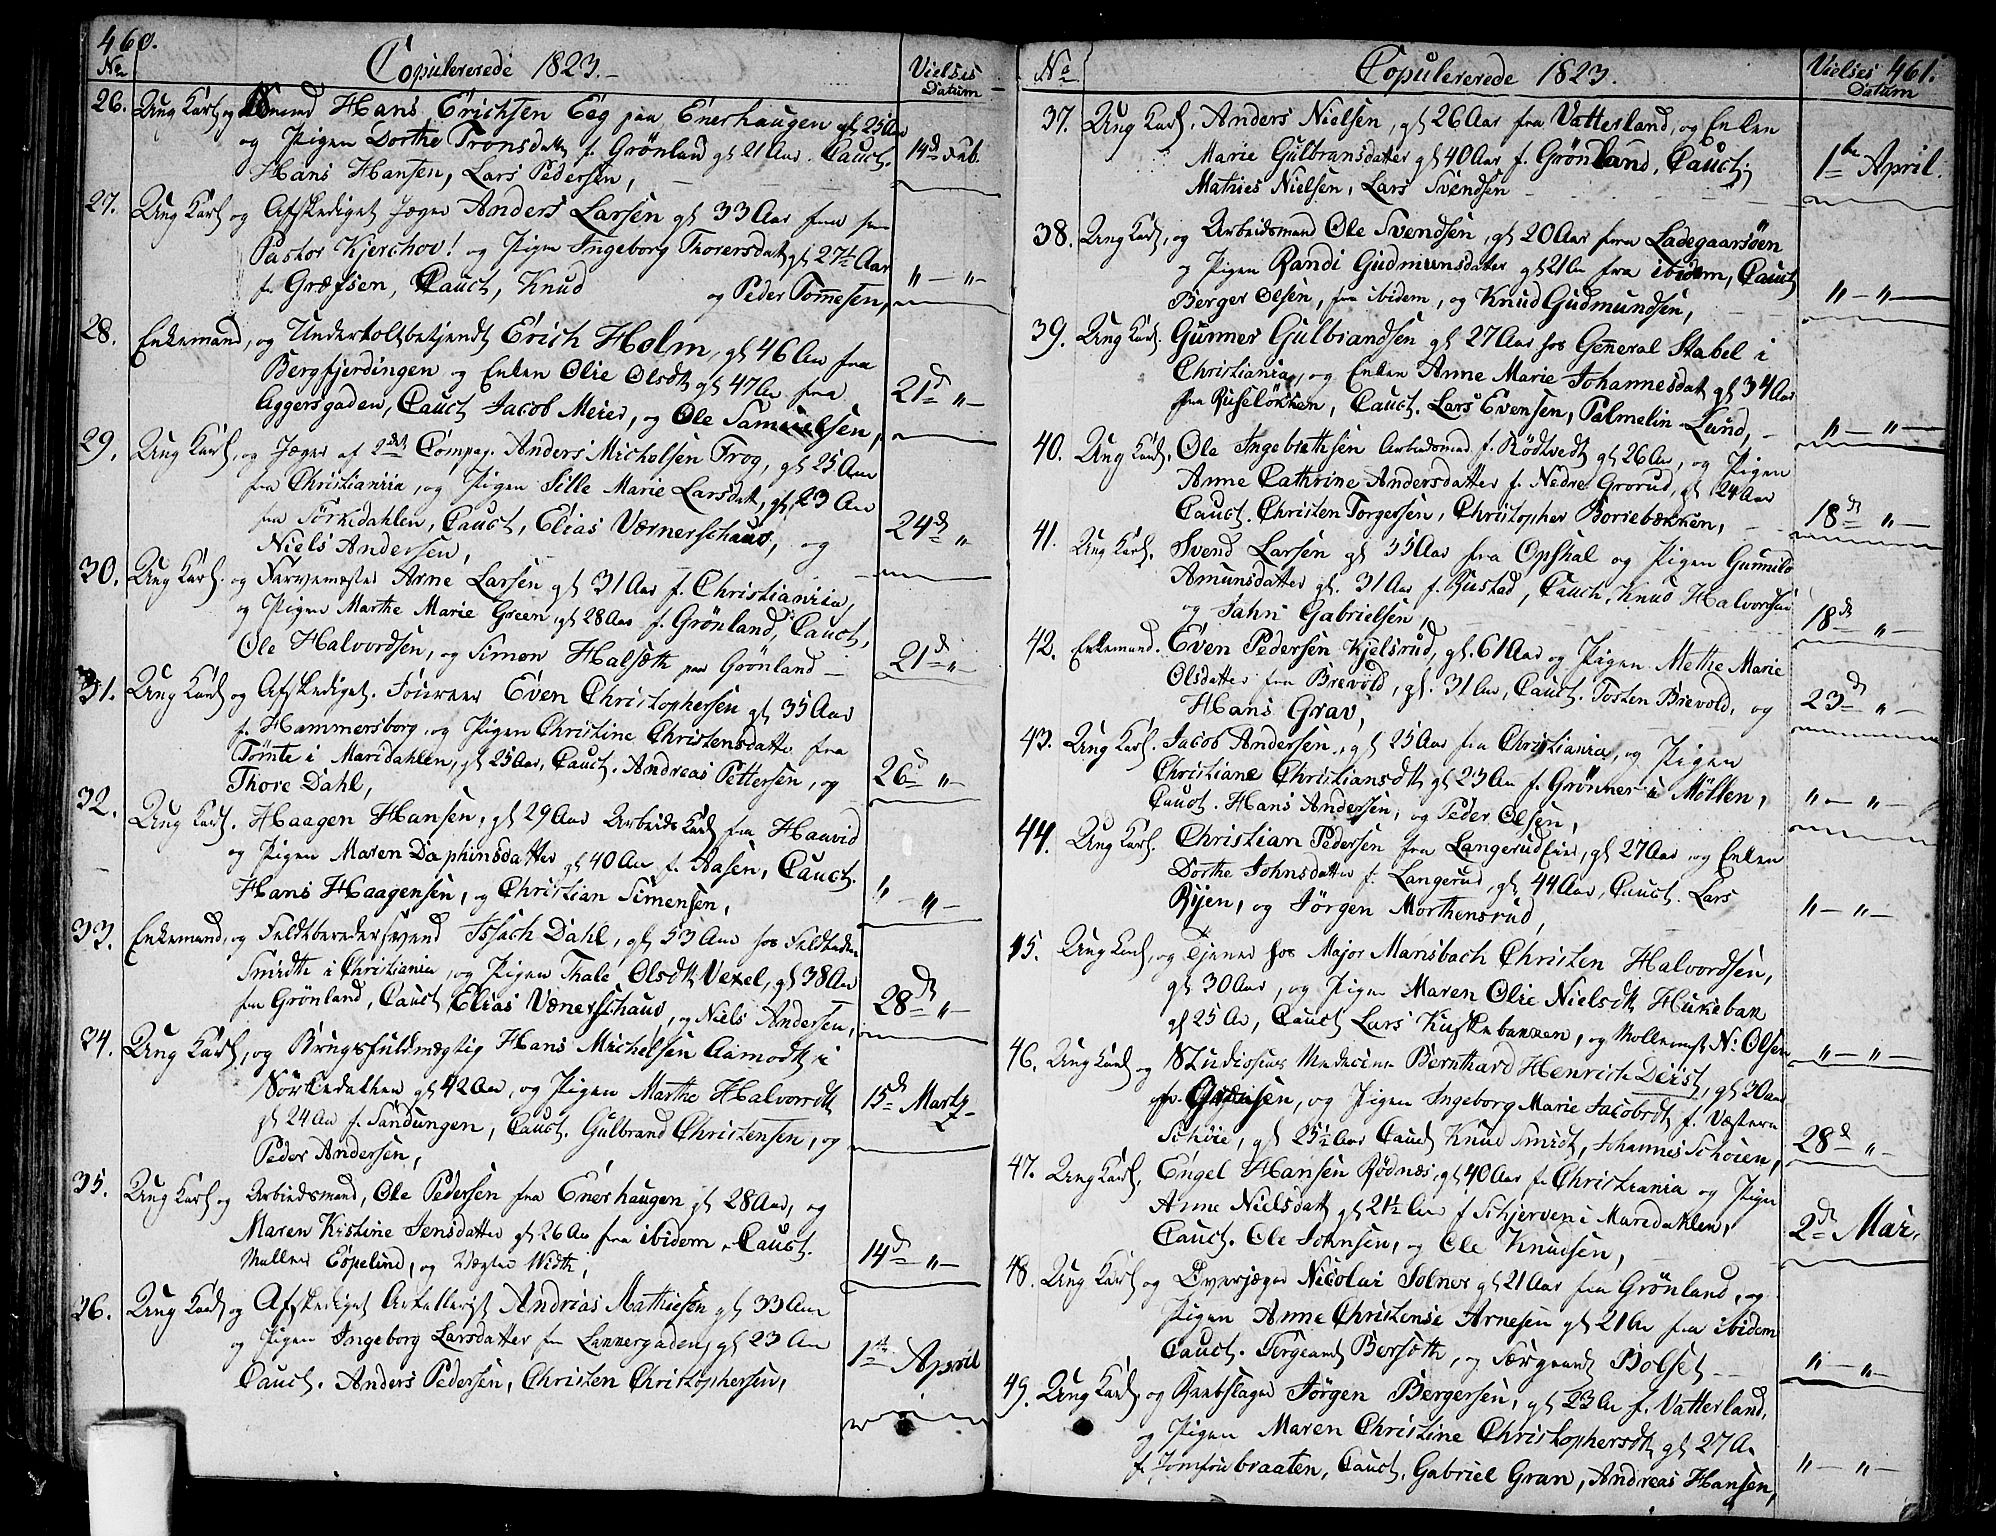 460.
No
Copulererede 1823.
Vielses Datum
26. Ung Karl og Hans Erichsen Eeg paa Enerhaugen gl 25 Aar
og Pigen Dorthe Tronsdatt f. Grönland gl 21 Aar. Cauct.
Hans Hansen, Lars Pedersen,
14d Feb.
27. Ung Karl og Afskediget Jæger Anders Larsen gl 33 Aar
Pastor Kjerchov! og Pigen Ingeborg Thorersdat gl 27½ Aar
f. Græfsen, Cauct, Knud og Peder Tommesen,
" — "
28. Enkemand, og Undertoldbetjendt Erich Holm, gl 46 Aar fra
Bergfjerdingen og Enken Olie Olsdtt gl 47 Aar fra
Aggersgaden, Cauct Jacob Meier, og Ole Samuelsen,
21d " —
29. Ung Karl, og Jæger af 2det Compag. Anders Michelsen Frog, gl 25 Aar
fra Christiania, og Pigen Sille Marie Larsdatt, gl 23 Aar
fra Sörkedahlen, Cauct, Elias Værnerschaud, og
Niels Andersen,
24d "
30. Ung Karl og Farvemester Arne Larsen gl 31 Aar f. Christiania,
og Pigen Marthe Marie Green, gl 28 Aar f. Grönland, Cauct,
Ole Halvordsen, og Simon Halsæth paa Grönland —
21d " —
31. Ung Karl og Afskediget Foureer Even Christophersen gl 35 Aar
f. Hammersborg, og Pigen Christine Christensdatter fra
Tömte i Maridahlen, gl 25 Aar, Cauct. Andreas Pettersen, og
Thore Dahl,
26d " —
32. Ung Karl. Haagen Hansen, gl 29 Aar Arbeids Karl fra Haavid
og Pigen Maren Daphinsdatter gl 40 Aar f. Aasen, Cauct.
Hans Haagensen, og Christian Simensen,
" — " —
33. Enkemand, og Feldtberedersvend Issach Dahl, gl 53 Aar hos
Smidth i Christiania, og Pigen Thale Olsdtt Vexel, gl 38 Aar
fra Grönland, Cauct Elias Vænerschaud, og Niels Andersen,
28d " —
34. Ung Karl, og Brugsfuldmægtig Hans Michelsen Aamodt i
Sörkedalhen gl 42 Aar, og Pigen Marthe Halvorsdtt
gl 24 Aar f. Sandungen, Cauct. Gulbrand Christensen, og
Peder Andersen,
15d Martz
35. Ung Karl og Arbeidsmand, Ole Pedersen fra Enerhaugen gl 28 Aar, og
Maren Kistine Jensdatter gl 26 Aar fra ibidem, Cauct.
Møller Espelund, og Vægter Width,
14d " —
36. Ung Karl og Afskediget Artillerist Andrias Mathiesen gl 33 Aar
og Pigen Ingeborg Larsdatter fra Lammergaden, gl 23 Aar
Cauct. Anders Pedersen, Christen Christophersen,
1ste April
No
Copulererede 1823.
Vielses Datum
461.
37. Ung Karl. Anders Nielsen, gl 26 Aar fra Vatterland, og Enken
Marie Gulbransdatter gl 40 Aar f. Grönland, Cauct,
Mathies Nielsen, Lars Svendsen
1ste April.
38. Ung Karl, og Arbeidsmand Ole Svendsen, gl 20 Aar fra Ladegaarsöen
og Pigen Randi Gudmunsdatter gl 21 Aar fra ibidem, Cauct
Berger Olsen, fra ibidem, og Knud Gudmundsen,
" — "
39. Ung Karl. Gunner Gulbrandsen gl 27 Aar hos General Stabel i
Christiania, og Enken Anne Marie Johannesdat gl 34 Aar
fra Ruseløkken, Cauct. Lars Evensen, Palmelin Lund,
" — " —
40. Ung Karl. Ole Ingebrethsen Arbeidsmand f. Rödtvedt gl 26 Aar, og Pigen
Anne Cathrine Andersdatter f. Nedre Grorud, gl 24 Aar
Cauct. Christen Torgersen, Christopher Boriebækken,
18d " —
41. Ung Karl. Svend Larsen gl 35 Aar fra Opshal og Pigen Gunnild
Amunsdatter gl. 31 Aar f. Rustad, Cauct. Knud Halvordsen
og Jahn Gabrielsen,
18d " —
42. Enkemand. Even Pedersen Kjelsrud, gl. 61 Aar og Pigen Methe Marie
Olsdatter fra Brevold, gl. 31 Aar, Cauct. Tosten Brevold, og
Hans Grav,
23d " —
43. Ung Karl. Jacob Andersen, gl 25 Aar fra Christiania, og Pigen
Christiane Christiansdtt gl 23 Aar f. Grönners Möllen,
Cauct. Hans Andersen, og Peder Olsen,
" — " —
44. Ung Karl. Christian Pedersen fra Langerudeier, gl 27 Aar og Enken
Dorthe Johnsdatter f. Langerud, gl 44 Aar, Cauct. Lars
Ryen, og Jörgen Morthensrud,
" — " —
45. Ung Karl, og Tjener hos Major Mansbach Christen Halvordsen,
gl 30 Aar, og Pigen Maren Olie Nielsdtt Hukeban
gl 25 Aar, Cauct Lars Kustebanken, og Mollemest N: Olsen
" — " —
46. Ung Karl og Studiosus Medicine Bernthard Henrich Deist, gl 30 Aar
og Pigen Ingeborg Marie Jacobsdt f. Væstern
Schöie, gl 25½ Aar Cauct Knud Smidt, Johannes Schöien,
28d " —
47. Ung Karl. Engel Hansen Rödnæs, gl 40 Aar f. Christiania og Pigen
Anne Nielsdatt gl 21½ Aar f Schjerven i Maredahlen,
Cauct. Ole Johnsen, og Ole Knudsen,
2d Mai
48. Ung Karl og Overjæger Nicolai Solner gl 21 Aar fra Grönland, og
Pigen Anne Christense Arnesen gl 21 Aar fra ibidem
Cauct. Sergeant Bersöth, og Særgeant Bolset
" — " —
49. Ung Karl. og Reebslager Jörgen Bergersen, gl 23 Aar f. Vatterland,
og Pigen Maren Christine Christophersdtt gl 27 Aar
f. Jomfrubraaten, Cauct. Gabriel Gran, Andreas Hansen,
" — " —